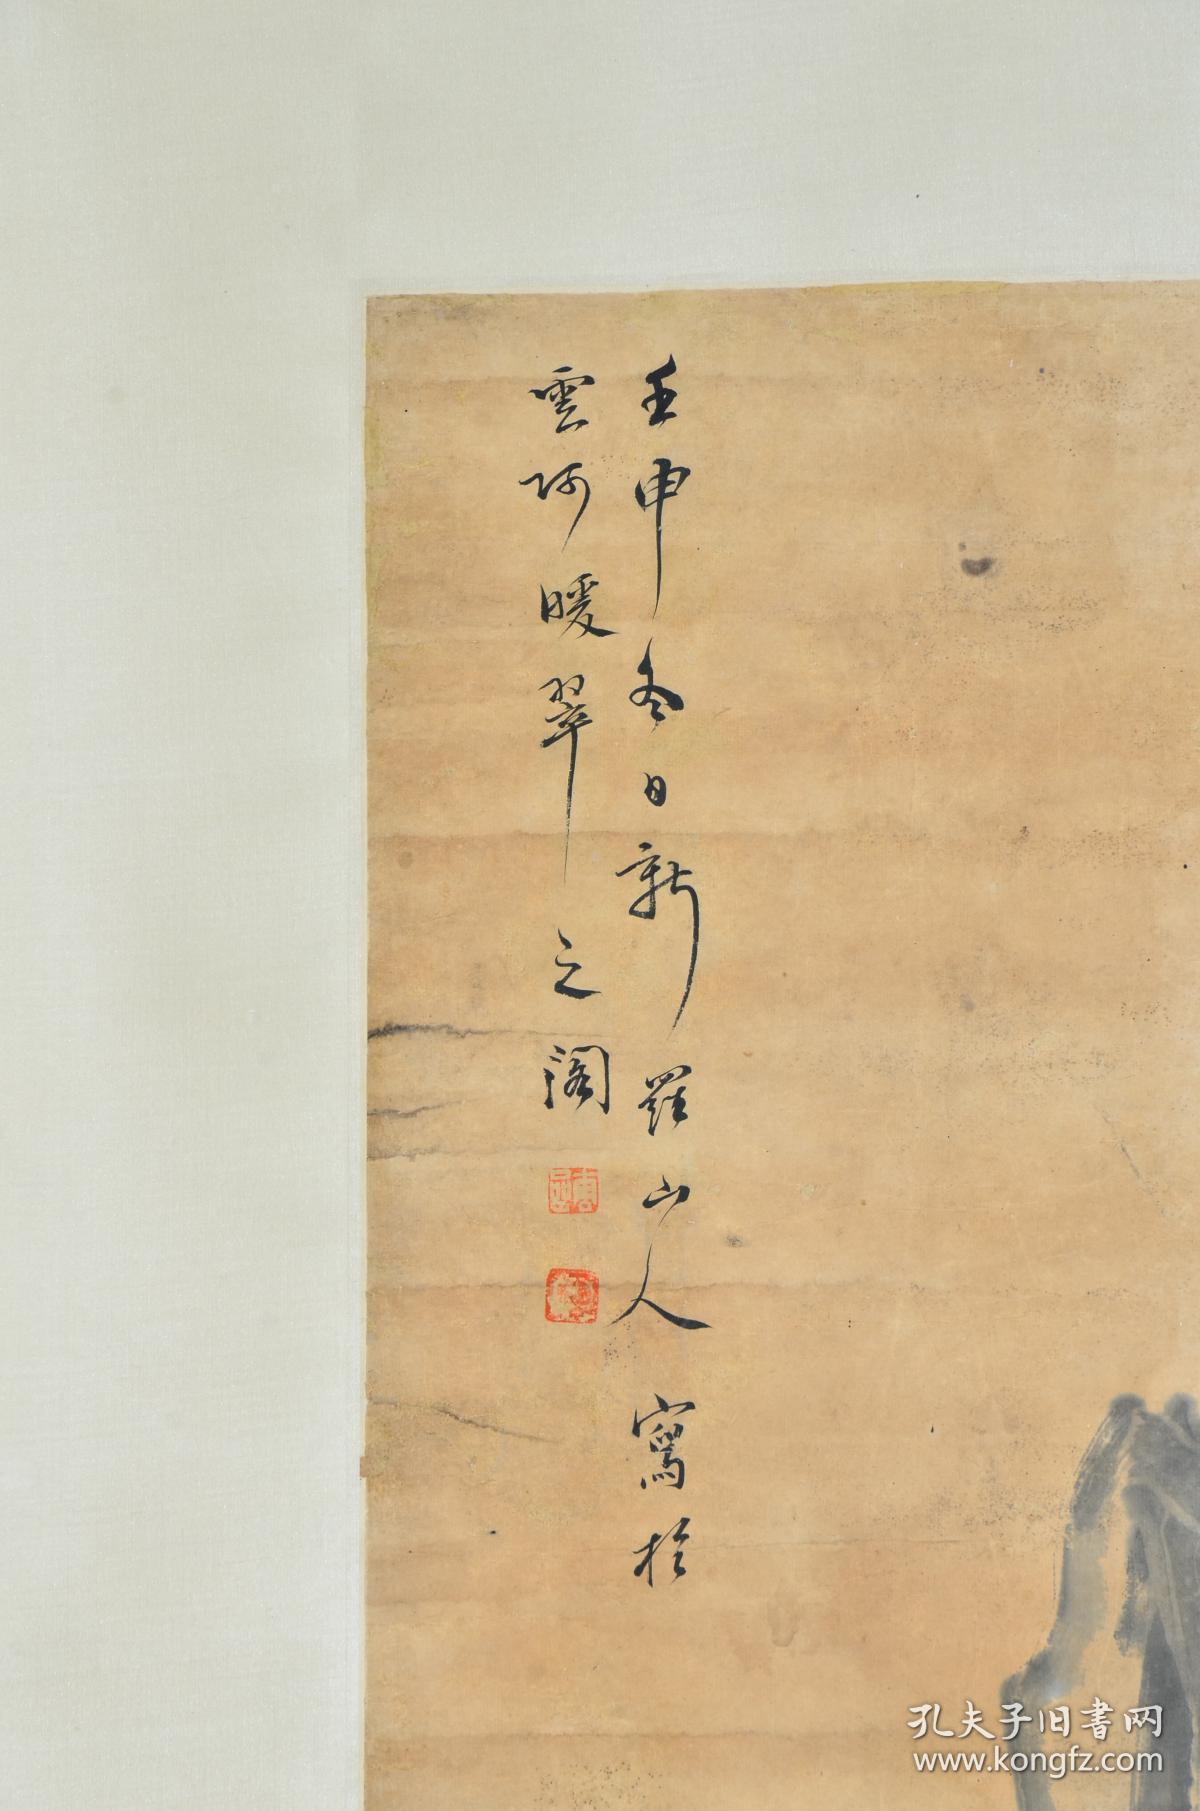 壬申冬日新羅山人寫於
雲阿暖翠之閣
孔夫子旧書网
www.kongfz.com